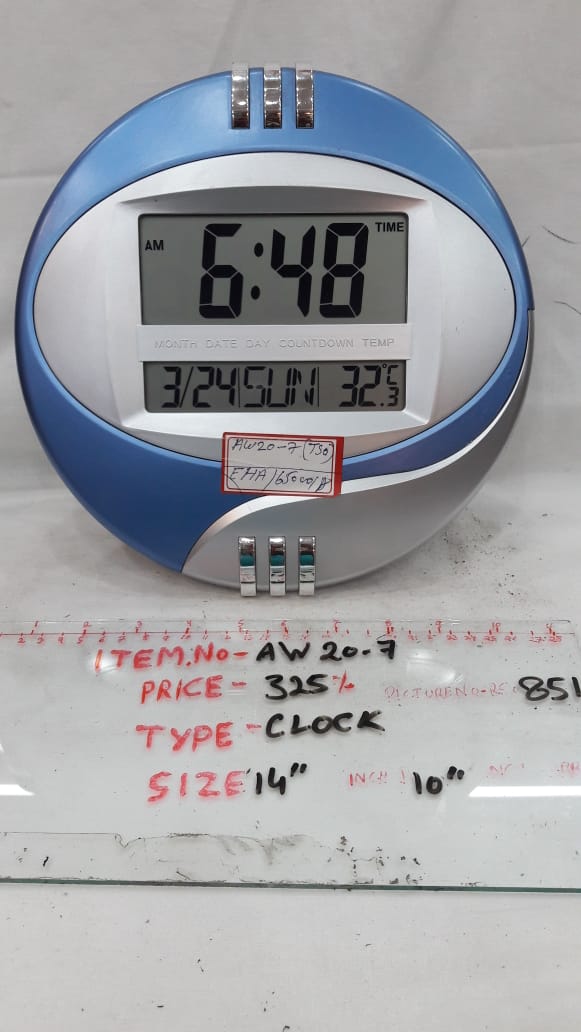 AM 6:48 TIME
MONTH DATE DAY COUNTDOWN TEMP
3/24 SUN 32.3°C
AW20-7 (TSO)
ITEM.NO- AW 20-7
PRICE- 325%
PICTURE NO- 851
TYPE- CLOCK
SIZE 14" INCH 10"